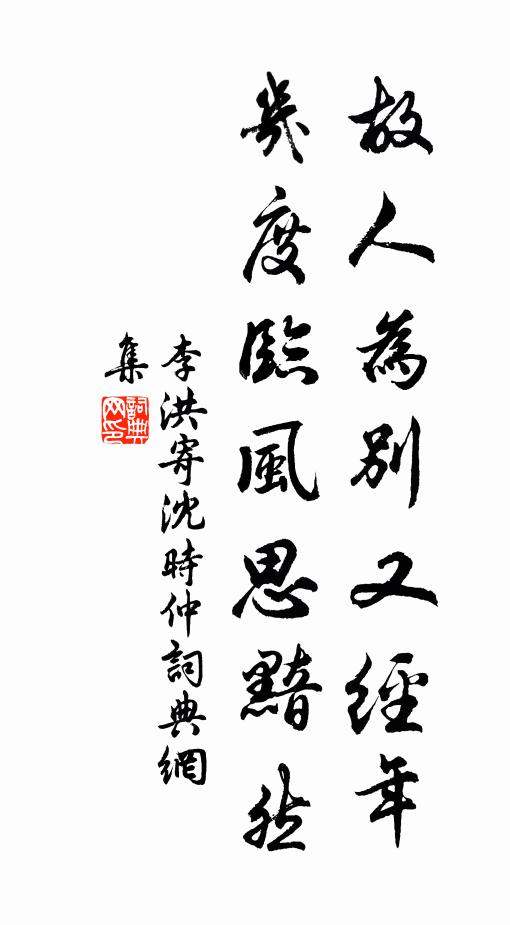 故人為別又經年
幾度臨風思黯然
李洪寄沈時仲詞典網
集
詞典
网印